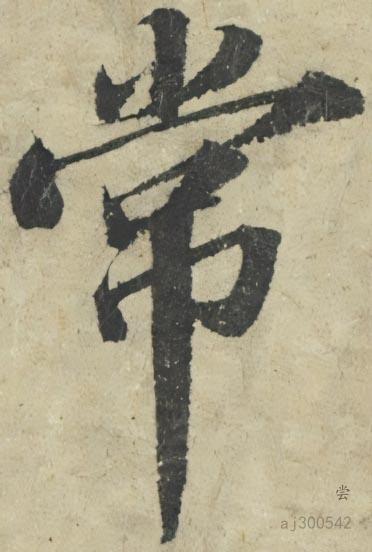 常
尝
aj300542